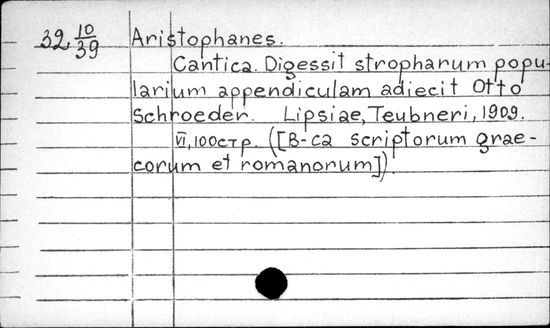 32 10/39 Aristophanes.
Cantica. Digessit stropharum popu-
larium appendiculam adiecit Otto
Schroeder. Lipsiae, Teubneri, 1909.
VI, 100стр. ([B-ca scriptorum grae-
corum et romanorum]).